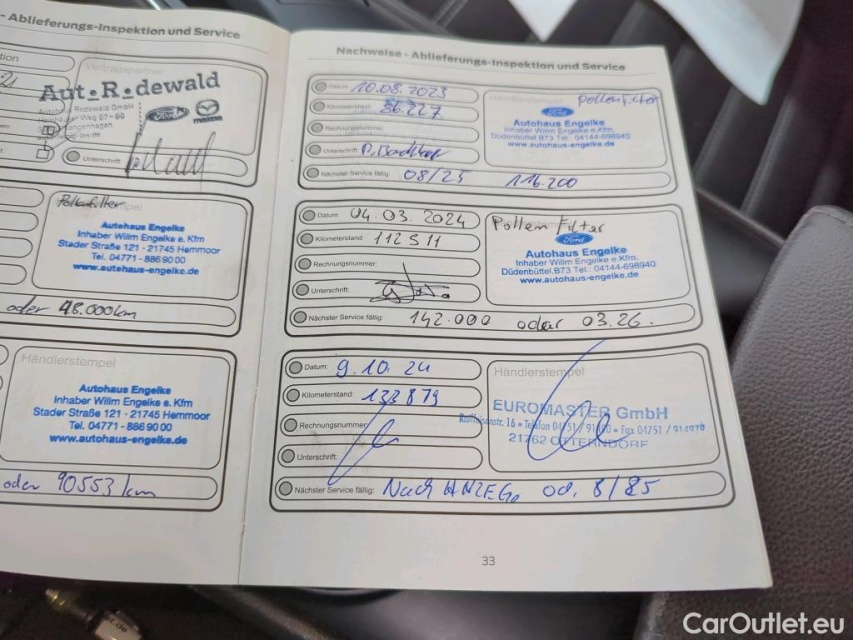 - Ablieferungs-Inspektion und Service
Vertragspartner
Aut.R.dewald
Autohaus Rodewald GmbH
Ford
mazda
Unterschrift:
Pollenfilter
Autohaus Engelke
Inhaber Willm Engelke e. Kfm
Stader Straße 121 - 21745 Hemmoor
Tel. 04771 - 886 90 00
www.autohaus-engelke.de
oder 48.000km
Händlerstempel
Autohaus Engelke
Inhaber Willm Engelke e. Kfm
Stader Straße 121 - 21745 Hemmoor
Tel. 04771 - 886 90 00
www.autohaus-engelke.de
oder 90553 km
Nachweise - Ablieferungs-Inspektion und Service
Datum: 10.08.2023
Kilometerstand: 86.227
Rechnungsnummer:
Unterschrift:
Nächster Service fällig: 08/25 116.200
Händlerstempel
Pollenfilter
Ford
Autohaus Engelke
Inhaber Willm Engelke e.Kfm.
Düdenbüttel,B73 Tel.: 04144-698940
www.autohaus-engelke.de
Datum: 04.03.2024
Kilometerstand: 112511
Rechnungsnummer:
Unterschrift:
Nächster Service fällig: 142.000 oder 03.26.
Pollen Filter
Ford
Autohaus Engelke
Inhaber Willm Engelke e.Kfm.
Düdenbüttel,B73 Tel.: 04144-698940
www.autohaus-engelke.de
Datum: 9.10.24
Kilometerstand: 133879
Rechnungsnummer:
Unterschrift:
Nächster Service fällig: Nach ANZEG. od. 8/25
Händlerstempel
EUROMASTER GmbH
Raiffeisenstr. 16 • Telefon 04751 / 91 • Fax 04751 / 914970
21762 OTTERNDORF
33
CarOutlet.eu